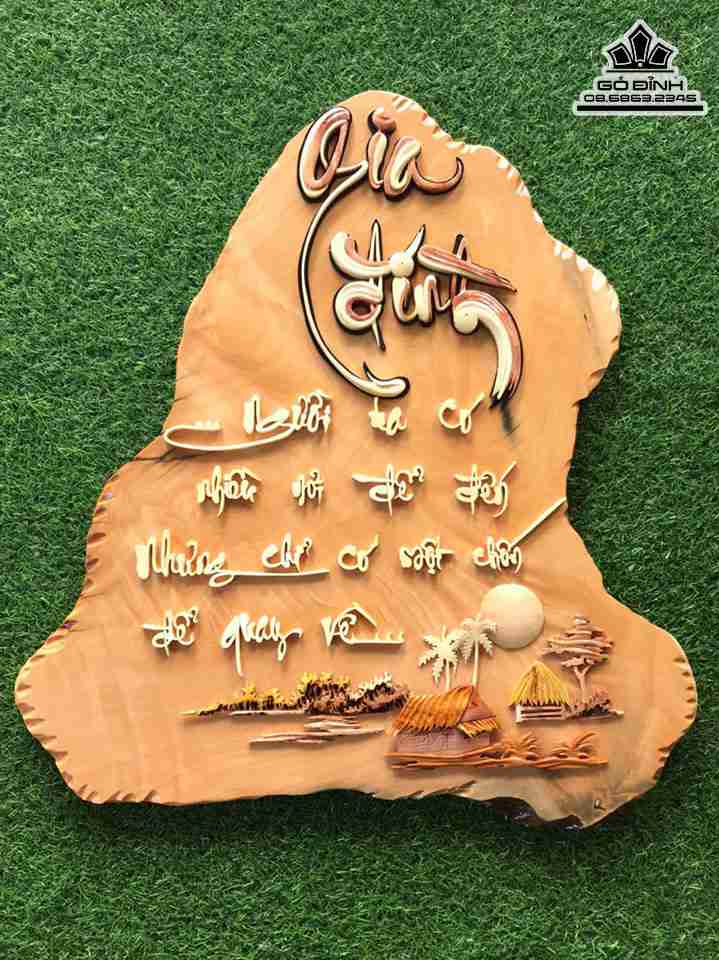 GỖ ĐỈNH
08.6863.2345
Gia
đình
... Người ta có
nhiều nơi để đến
Nhưng chỉ có một chốn
để quay về...